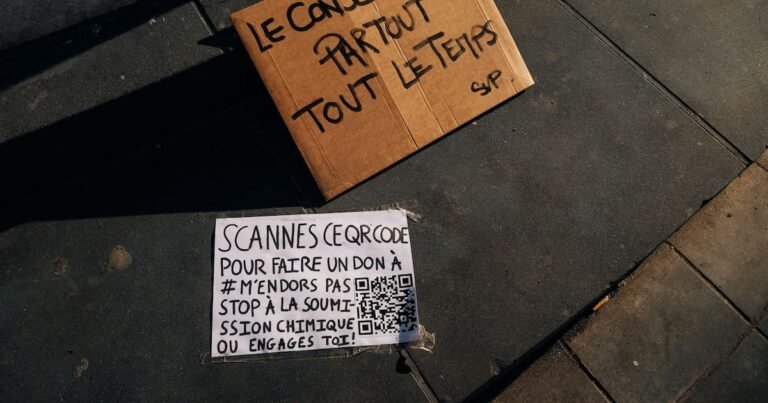 LE
PARTOUT
TOUT LE TEMPS
SVP
SCANNES CE QR CODE
POUR FAIRE UN DON À
# M'ENDORS PAS
STOP À LA SOUMI-
SSION CHIMIQUE
OU ENGAGES TOI!